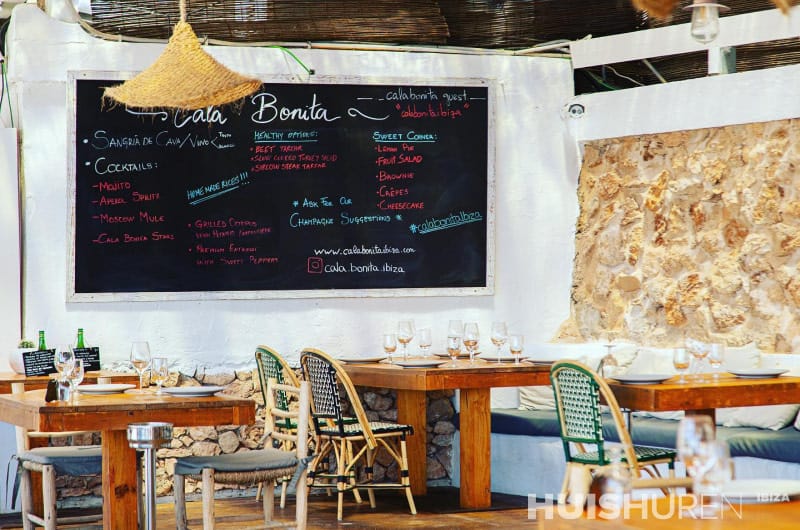 Cala Bonita
calabonita guest
"calabonitaibiza"
• SANGRÍA DE CAVA / VINO < TINTO
BLANCO
• COCKTAILS:
- MOJITO
- APEROL SPRITZ
- MOSCOW MULE
- CALA BONITA STARS
HEALTHY OPTIONS:
• BEET TARTAR
• SLOW COOKED TURKEY SALAD
• SIRLOIN STEAK TARTAR
HOME MADE RICES!!!
• GRILLED OCTOPUS
• PREMIUM ENTRECOT
WITH SWEET PEPPERS
SWEET CORNER:
• LEMON PIE
• FRUIT SALAD
• BROWNIE
• CRÊPES
• CHEESECAKE
* ASK FOR OUR
CHAMPAGNE SUGGESTIONS *
#calabonitaibiza
www.calabonitaibiza.com
cala.bonita.ibiza
HUISHUREN IBIZA